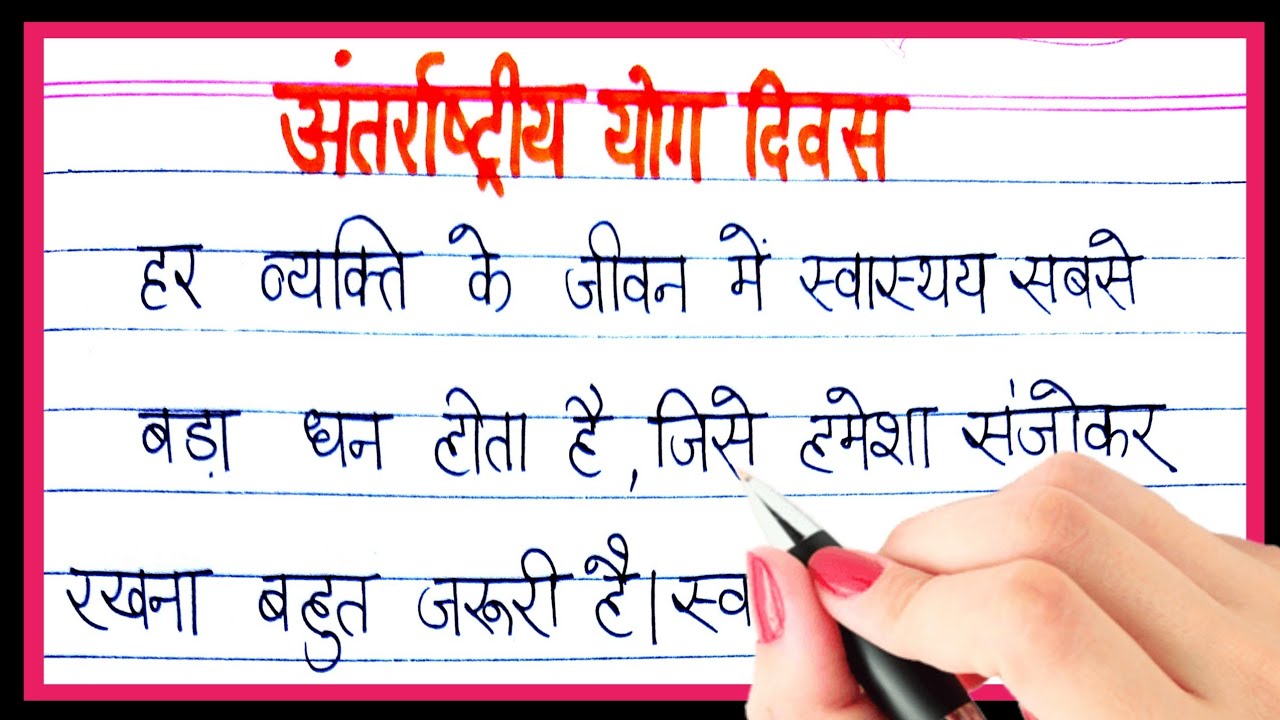 अंतर्राष्ट्रीय योग दिवस
हर व्यक्ति के जीवन में स्वास्थय सबसे
बड़ा धन होता है, जिसे हमेशा संजोकर
रखना बहुत जरूरी है। स्व